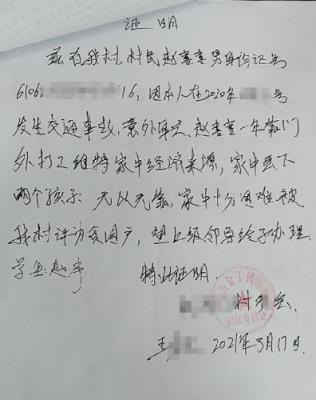 证明
兹有我村村民赵喜喜 男 身份证号
6106 16，因本人在2020年 号
发生交通事故，意外身亡，赵喜喜一年靠门
外打工维持家中经济来源，家中丢下
两个孩子 无以无靠，家中十分困难被
我村评访贫困户，望上级领导给予办理.
学生：赵宇
特此证明：
村委会
王 2021年3月17日